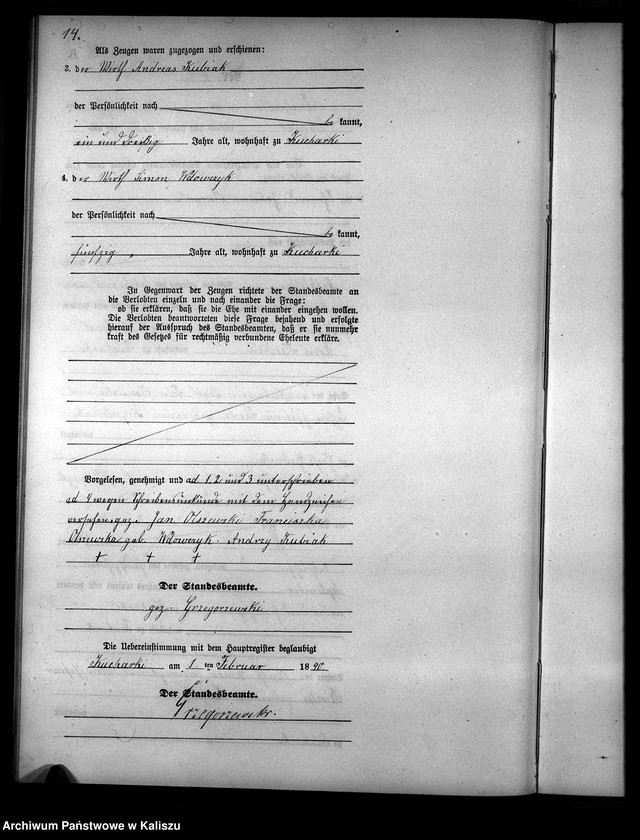 14.
Als Zeugen waren zugezogen und erschienen:
3. der Wirth Andreas Kubiak
der Persönlichkeit nach
be kannt,
ein und dreißig Jahre alt, wohnhaft zu Kucharki
4. der Wirth Simon Wdowczyk
der Persönlichkeit nach
be kannt,
fünfzig, Jahre alt, wohnhaft zu Kucharki
In Gegenwart der Zeugen richtete der Standesbeamte an
die Verlobten einzeln und nach einander die Frage:
ob sie erklären, daß sie die Ehe mit einander eingehen wollen.
Die Verlobten beantworteten diese Frage bejahend und erfolgte
hierauf der Ausspruch des Standesbeamten, daß er sie nunmehr
kraft des Gesetzes für rechtmäßig verbundene Eheleute erkläre.
Vorgelesen, genehmigt und ad 1, 2 und 3 unterschrieben
ad 4 wegen Schreibensunkunde mit dem Handzeichen
versehen. gez. Jan Olszewski Franciszka
Olszewska geb. Wdowczyk. Andrzy Kubiak
+ + +
Der Standesbeamte.
gez. Grzegorzewski
Die Uebereinstimmung mit dem Hauptregister beglaubigt
Kucharki am 1 ten Februar 1890.
Der Standesbeamte.
Grzegorzewski.
Archiwum Państwowe w Kaliszu